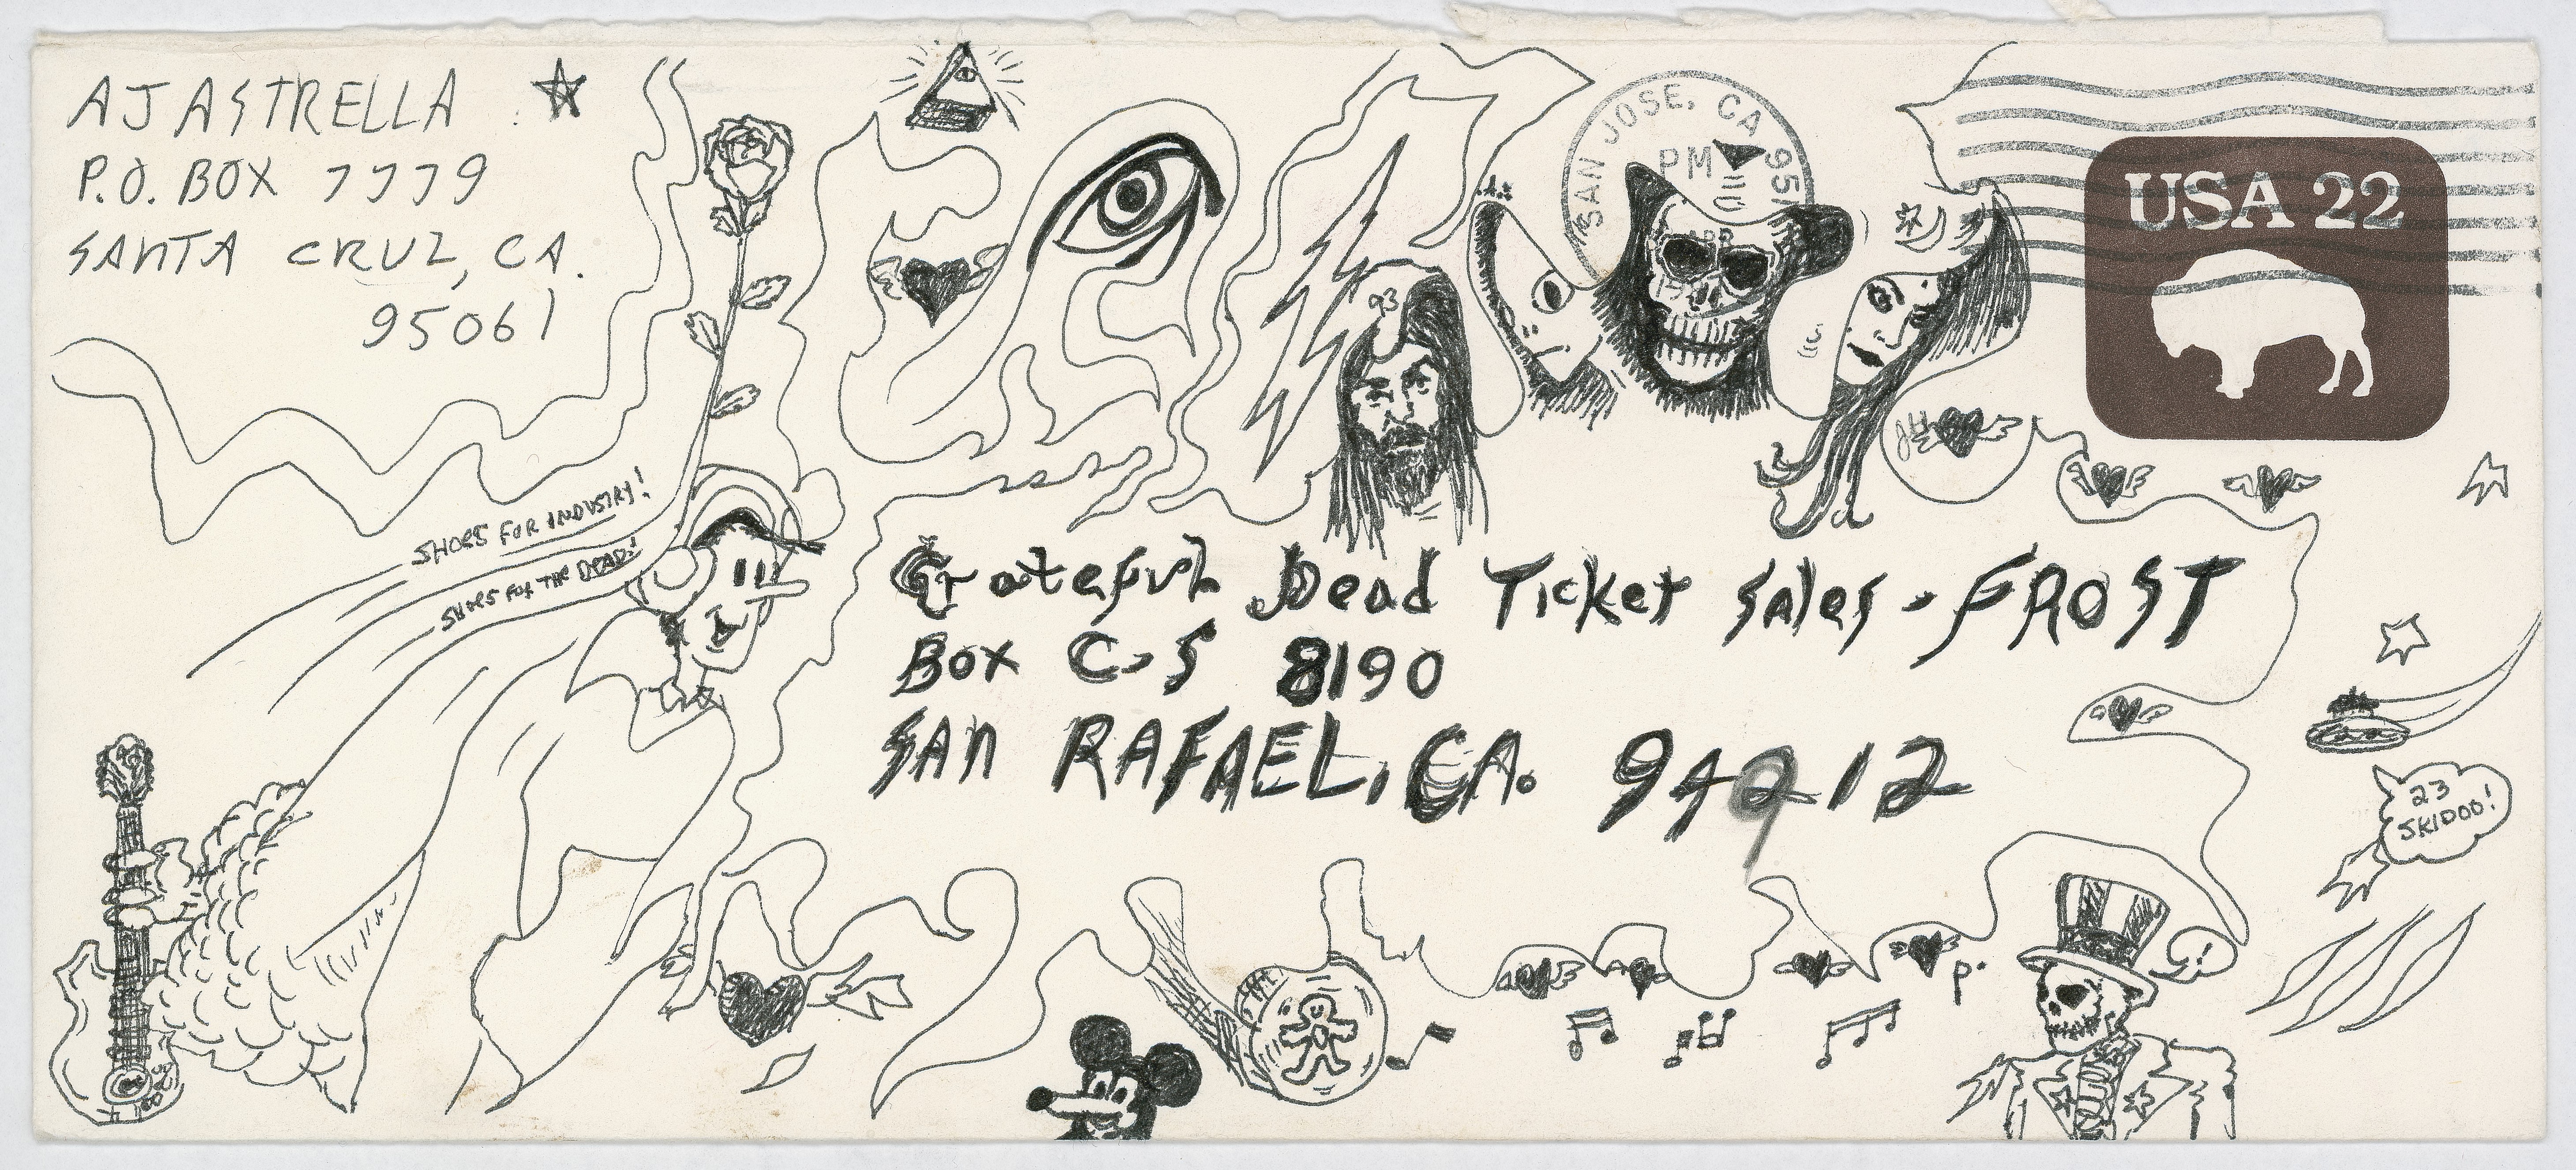 AJ ASTRELLA
P.O. BOX 7779
SANTA CRUZ, CA.
95061
SAN JOSE, CA 951
PM
APR
USA 22
SHOES FOR INDUSTRY!
SHOES FOR THE DEAD!
Grateful Dead Ticket Sales - FROST
Box C-S 8190
SAN RAFAEL, CA. 94912
23
SKIDOO!